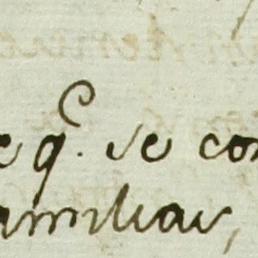 e q.e se con
amiliar,